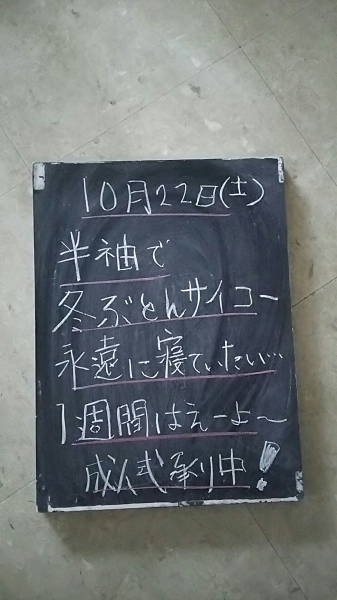 10月22日(土)
半袖で
冬ぶとんサイコー
永遠に寝ていたい…
1週間はえーよ〜
成人式承り中!